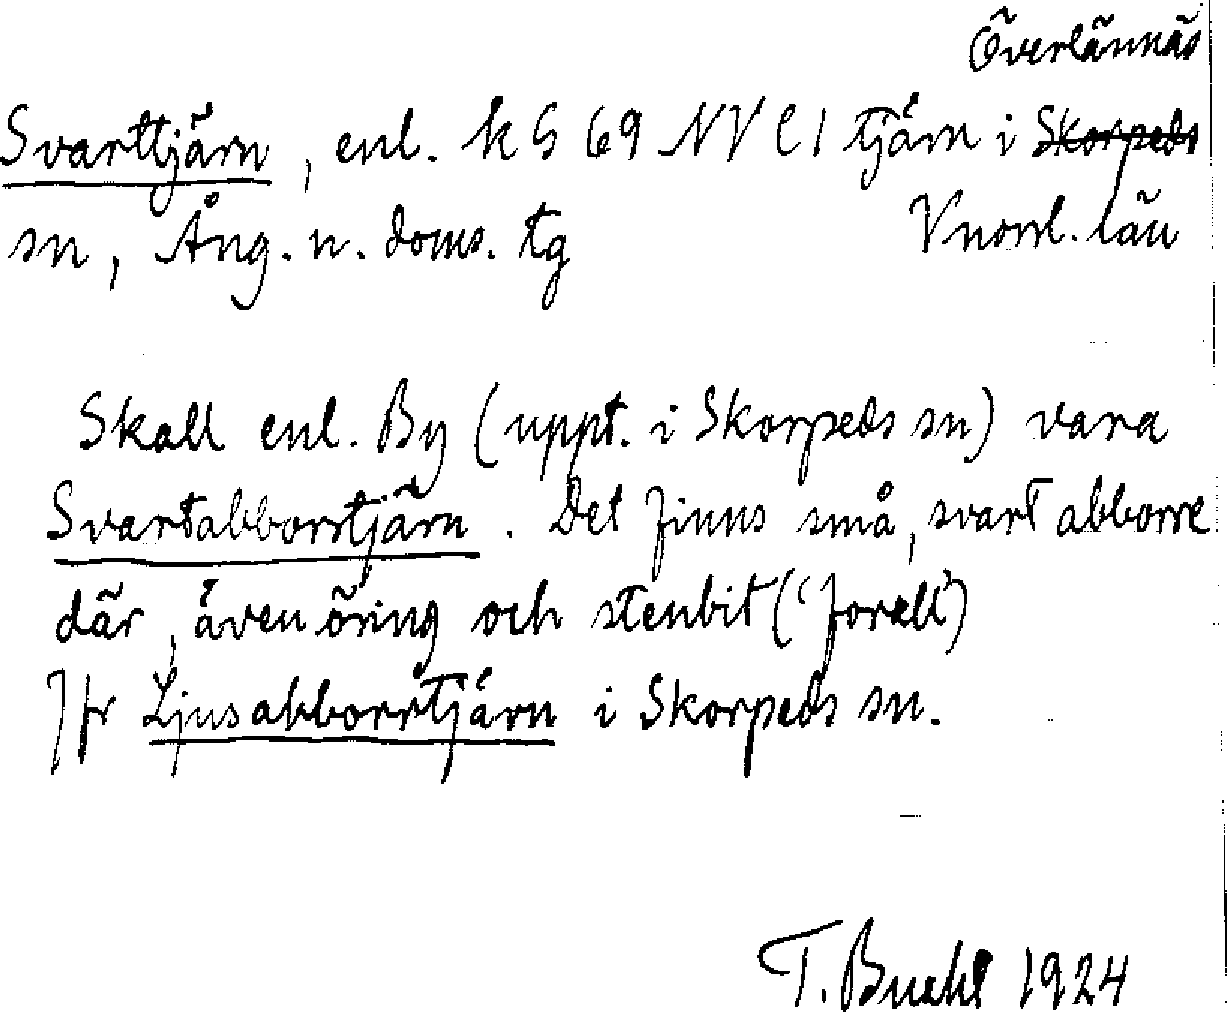 Överlännäs
Svarttjärn, enl. k G 69 NV C 1 tjärn i Skorpeds
sn, Ång. n. doms. tg Vnorrl. län
Skall enl. By (uppt. i Skorpeds sn) vara
Svartabborrtjärn. Det finns små, svart abborre
där, även öring och stenbit ('forell')
Jfr Ljusabborrtjärn i Skorpeds sn.
T. Bucht 1924